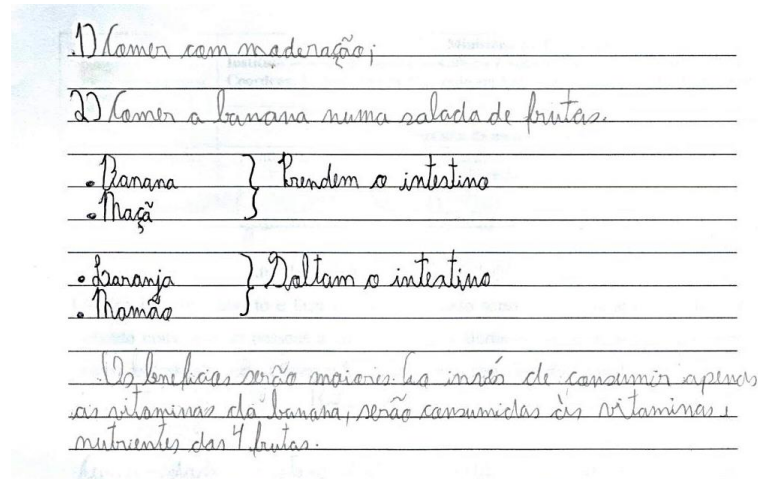 1) Comer com moderação;
2) Comer a banana numa salada de frutas.
• Banana } Prendem o intestino
• Maçã
• Laranja } Soltam o intestino
• Mamão
Os benefícios serão maiores. Ao invés de consumir apenas
as vitaminas da banana, serão consumidas às vitaminas e
nutrientes das 4 frutas.